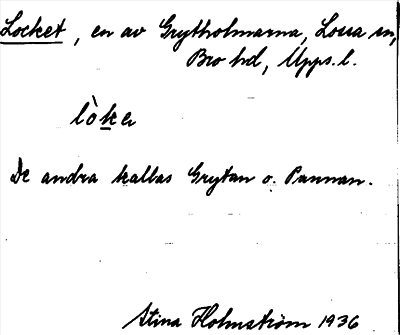 Locket, en av Grytholmarna, Lossa sn,
Bro hd, Upps. l.
lò̀ke
De andra kallas Grytan o. Pannan.
Stina Holmström 1936